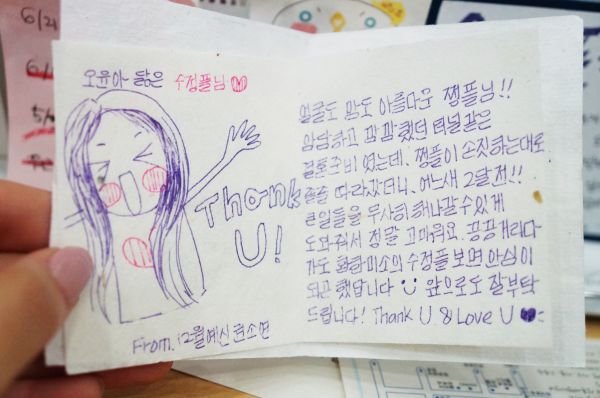 6/21
오윤아 닮은 수정플님♡
Thank
U!
From. 12월예신 권소연
얼굴도 맘도 아름다운 쩡플님!!
암담하고 깜깜했던 터널같은
결혼준비였는데, 쩡플이 손짓하는대로
졸졸 따라갔더니, 어느새 2달전!!
큰일들을 무사히 해나갈수있게
도와줘서 정말 고마워요. 끙끙거리다
가도 화람미소의 수정플 보면 안심이
되곤 했답니다 앞으로도 잘부탁
드립니다! Thank U & Love U ♥